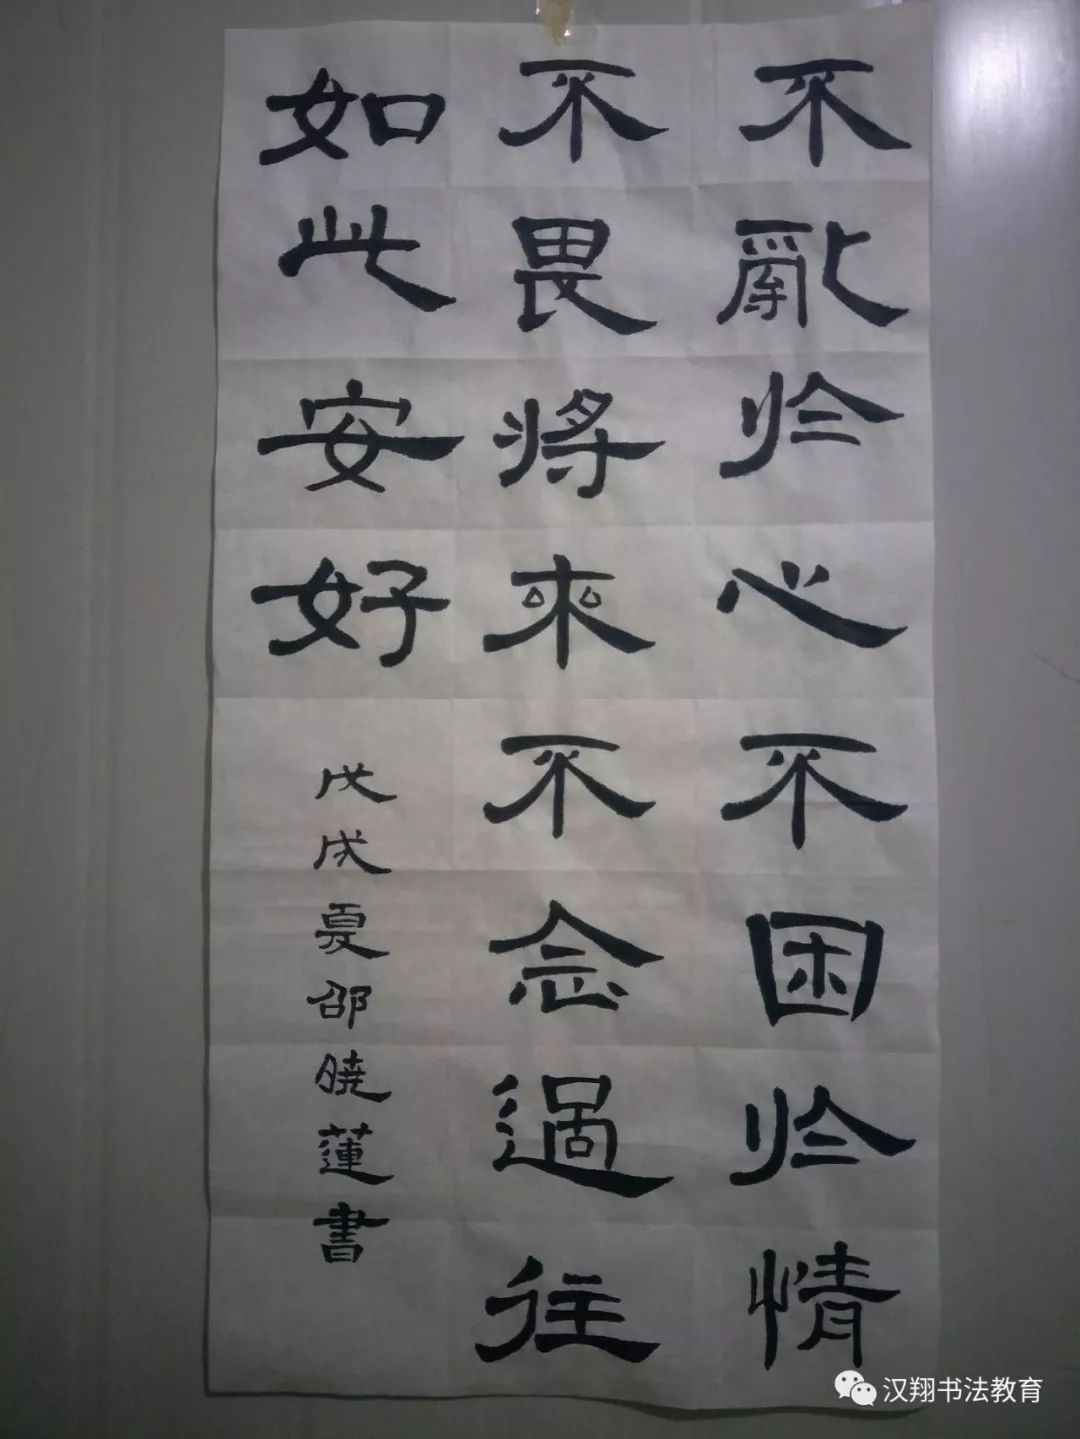 不亂於心不困於情
不畏將來不念過往
如此安好
戊戌夏邵曉蓮書
汉翔书法教育